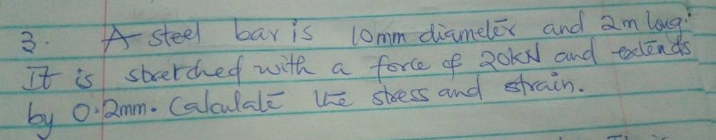 3. A steel bar is 10mm diameter and 2m long.
It is stretched with a force of 20kN and extends
by 0.2mm. Calculate the stress and strain.